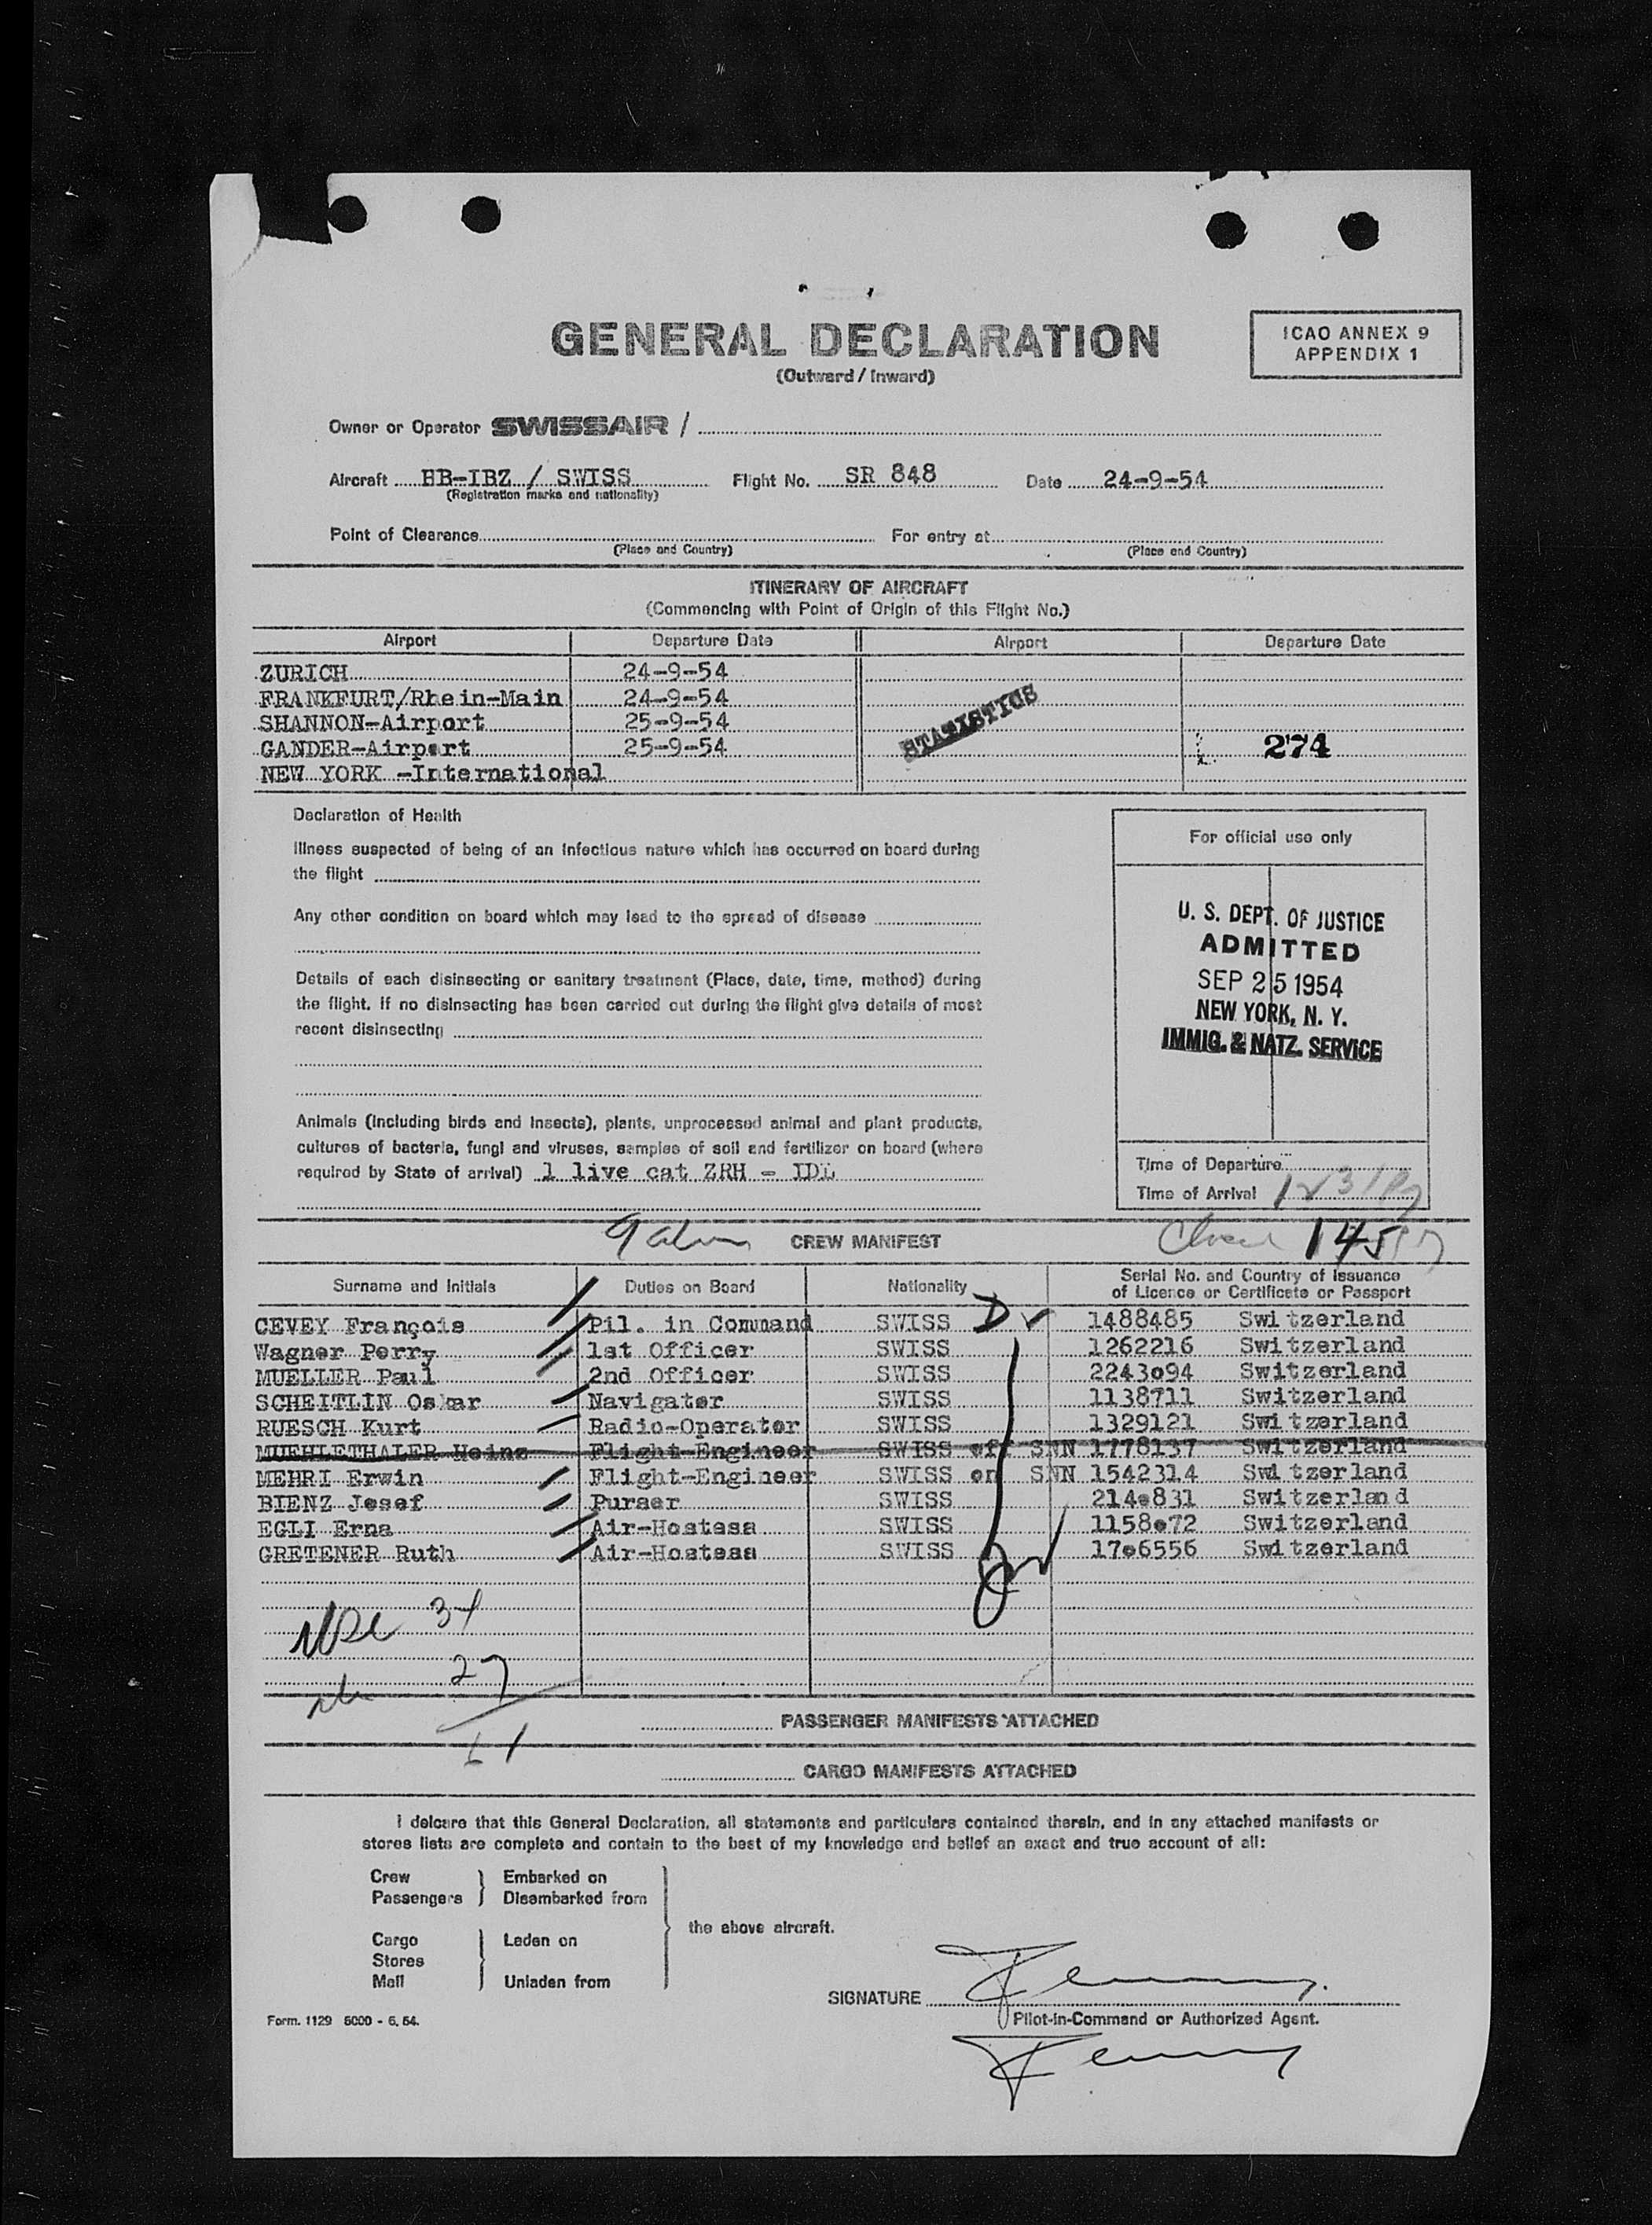 GENERAL DECLARATION
(Outward / Inward)
ICAO ANNEX 9
APPENDIX 1
Owner or Operator SWISSAIR /
Aircraft HB-IBZ / SWISS Flight No. SR 848 Date 24-9-54
(Registration marks and nationality)
Point of Clearance For entry at
(Place and Country) (Place and Country)
ITINERARY OF AIRCRAFT
(Commencing with Point of Origin of this Flight No.)
Airport Departure Date Airport Departure Date
ZURICH 24-9-54
FRANKFURT/Rhein-Main 24-9-54
SHANNON-Airport 25-9-54
GANDER-Airport 25-9-54
NEW YORK -International
STATISTICS
274
Declaration of Health
Illness suspected of being of an infectious nature which has occurred on board during
the flight
Any other condition on board which may lead to the spread of disease
Details of each disinsecting or sanitary treatment (Place, date, time, method) during
the flight. If no disinsecting has been carried out during the flight give details of most
recent disinsecting
Animals (including birds and insects), plants, unprocessed animal and plant products,
cultures of bacteria, fungi and viruses, samples of soil and fertilizer on board (where
required by State of arrival) 1 live cat ZRH - IDL
For official use only
U. S. DEPT. OF JUSTICE
ADMITTED
SEP 25 1954
NEW YORK, N. Y.
IMMIG. & NATZ. SERVICE
Time of Departure
Time of Arrival
CREW MANIFEST
145
Surname and Initials Duties on Board Nationality Serial No. and Country of Issuance
of Licence or Certificate or Passport
CEVEY François Pil. in Command SWISS 1488485 Switzerland
Wagner Perry 1st Officer SWISS 1262216 Switzerland
MUELLER Paul 2nd Officer SWISS 2243o94 Switzerland
SCHEITLIN Oskar Navigator SWISS 1138711 Switzerland
RUESCH Kurt Radio-Operator SWISS 1329121 Switzerland
MUEHLETHALER Heinz Flight-Engineer SWISS off SNN 1778137 Switzerland
MEHRI Erwin Flight-Engineer SWISS on SNN 1542314 Switzerland
BIENZ Josef Purser SWISS 214o831 Switzerland
EGLI Erna Air-Hostess SWISS 1158o72 Switzerland
GRETENER Ruth Air-Hostess SWISS 17o6556 Switzerland
34
27
61
PASSENGER MANIFESTS ATTACHED
CARGO MANIFESTS ATTACHED
I delcare that this General Declaration, all statements and particulars contained therein, and in any attached manifests or
stores lists are complete and contain to the best of my knowledge and belief an exact and true account of all:
Crew Embarked on
Passengers Disembarked from
the above aircraft.
Cargo Laden on
Stores
Mail Unladen from
SIGNATURE
Pilot-in-Command or Authorized Agent.
Form. 1129 5000 - 6. 54.